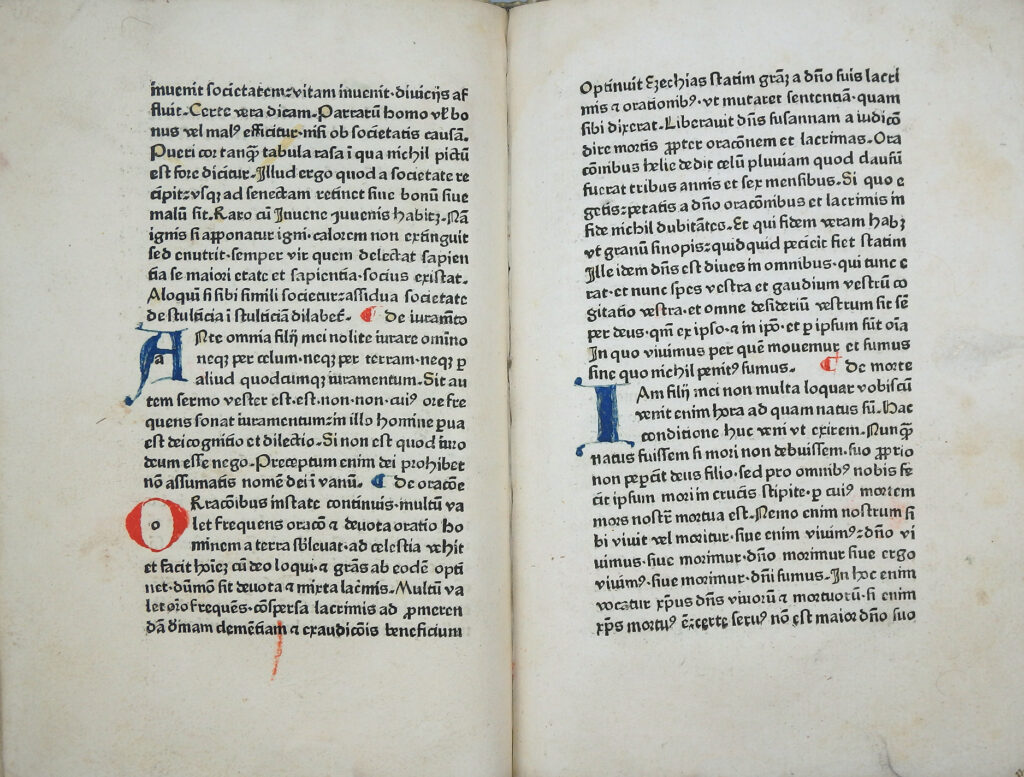 inuenit societatem: vitam inuenit. diuicijs af
fluit. Certe vera dicam. Parratū homo vł bo
nus vel malꝰ efficitur. nisi ob societatis causā.
Pueri cor tanꝙ tabula rasa ī qua nichil pictū
est fore dicitur. Illud ergo quod a societate re
cipit: vsqȝ ad senectam retinet siue bonū siue
malū sit. Raro cū Iuuene iuuenis habitȝ. Nā
ignis si apponatur igni. calorem non extinguit
sed enutrit. semper vir quem delectat sapien
tia se maiori etate et sapientia. socius existat.
Aloquī si sibi simili societur: assidua societate
de stulticia ī stulticiā dilabet᷑. ¶ De iuramēto
ANte omnia filij mei nolite iurare omīno
neqȝ per celum. neqȝ per terram. neqȝ ꝑ
aliud quodcumqȝ iuramentum. Sit au
tem sermo vester est. est. non. non. cuiꝰ ore fre
quens sonat iuramentum: in illo homine ꝑua
est dei cognitio et dilectio. Si non est quod iuro
deum esse nego. Preceptum enim dei prohibet
nō assumatis nomē dei ī vanū. ¶ De oracōe
ORacōibus instate continuis. multū va
let frequens oracō ⁊ deuota oratio ho
minem a terra sb̄leuat. ad celestia vehit
et facit hoīeȝ cū deo loqui. ⁊ grās ab eodē opti
net. dūmō sit deuota ⁊ mixta lacīmis. Multū va
let oro frequēs. cōspersa lacrimis ad ꝓmeren
dā dīnam clementiam ⁊ exaudicōis beneficium
Optinuit Ezechias statim grāȝ a dño suis lacri
mis ⁊ orationibꝰ. vt mutaret sententiā. quam
sibi dixerat. Liberauit dñs susannam a iudicō
dire mortis ꝓpter oracōnem et lacrimas. Ora
cōnibus helie dedit celū pluuiam quod clausū
fuerat tribus annis et sex mensibus. Si quo e
getis: petatis a dño oracōnibus et lacrimis in
fide nichil dubitātes. Et qui fidem veram habȝ
vt granū sinapis: quidquid pecieit fiet statim
Ille idem dñs est diues in omnibus. qui tunc e
rat. et nunc spes vestra et gaudium vestrū co
gitatio vestra. et omne desideriū vestrum sit sē
per deus. qm̄ ex ipso. ⁊ in ip̄o. et ꝑ ipsum sūt oīa
In quo viuimus per quē mouemur et sumus
sine quo nichil penitꝰ sumus. ¶ De morte
IAm filij mei non multa loquar vobiscū
venit enim hora ad quam natus sū. Hac
conditione huc veni vt exirem. Nunꝙ
natus fuissem si mori non debuissem. suo ꝓprio
non peꝑcit deus filio. sed pro omnibꝰ nobis fe
cit ipsum mori in crucis stipite. ꝑ cuiꝰ mortem
mors nostrē mortua est. Nemo enim nostrum si
bi viuit vel moritur. siue enim viuimꝰ: dño vi
uimus. siue morimur. dño morimur siue ergo
viuimꝰ. siue morimur. dñi sumus. In hoc enim
vocatur xp̄us dñs viuorū ⁊ mortuorū. si enim
xp̄s mortuꝰ ē: certe seruꝰ nō est maior dño suo